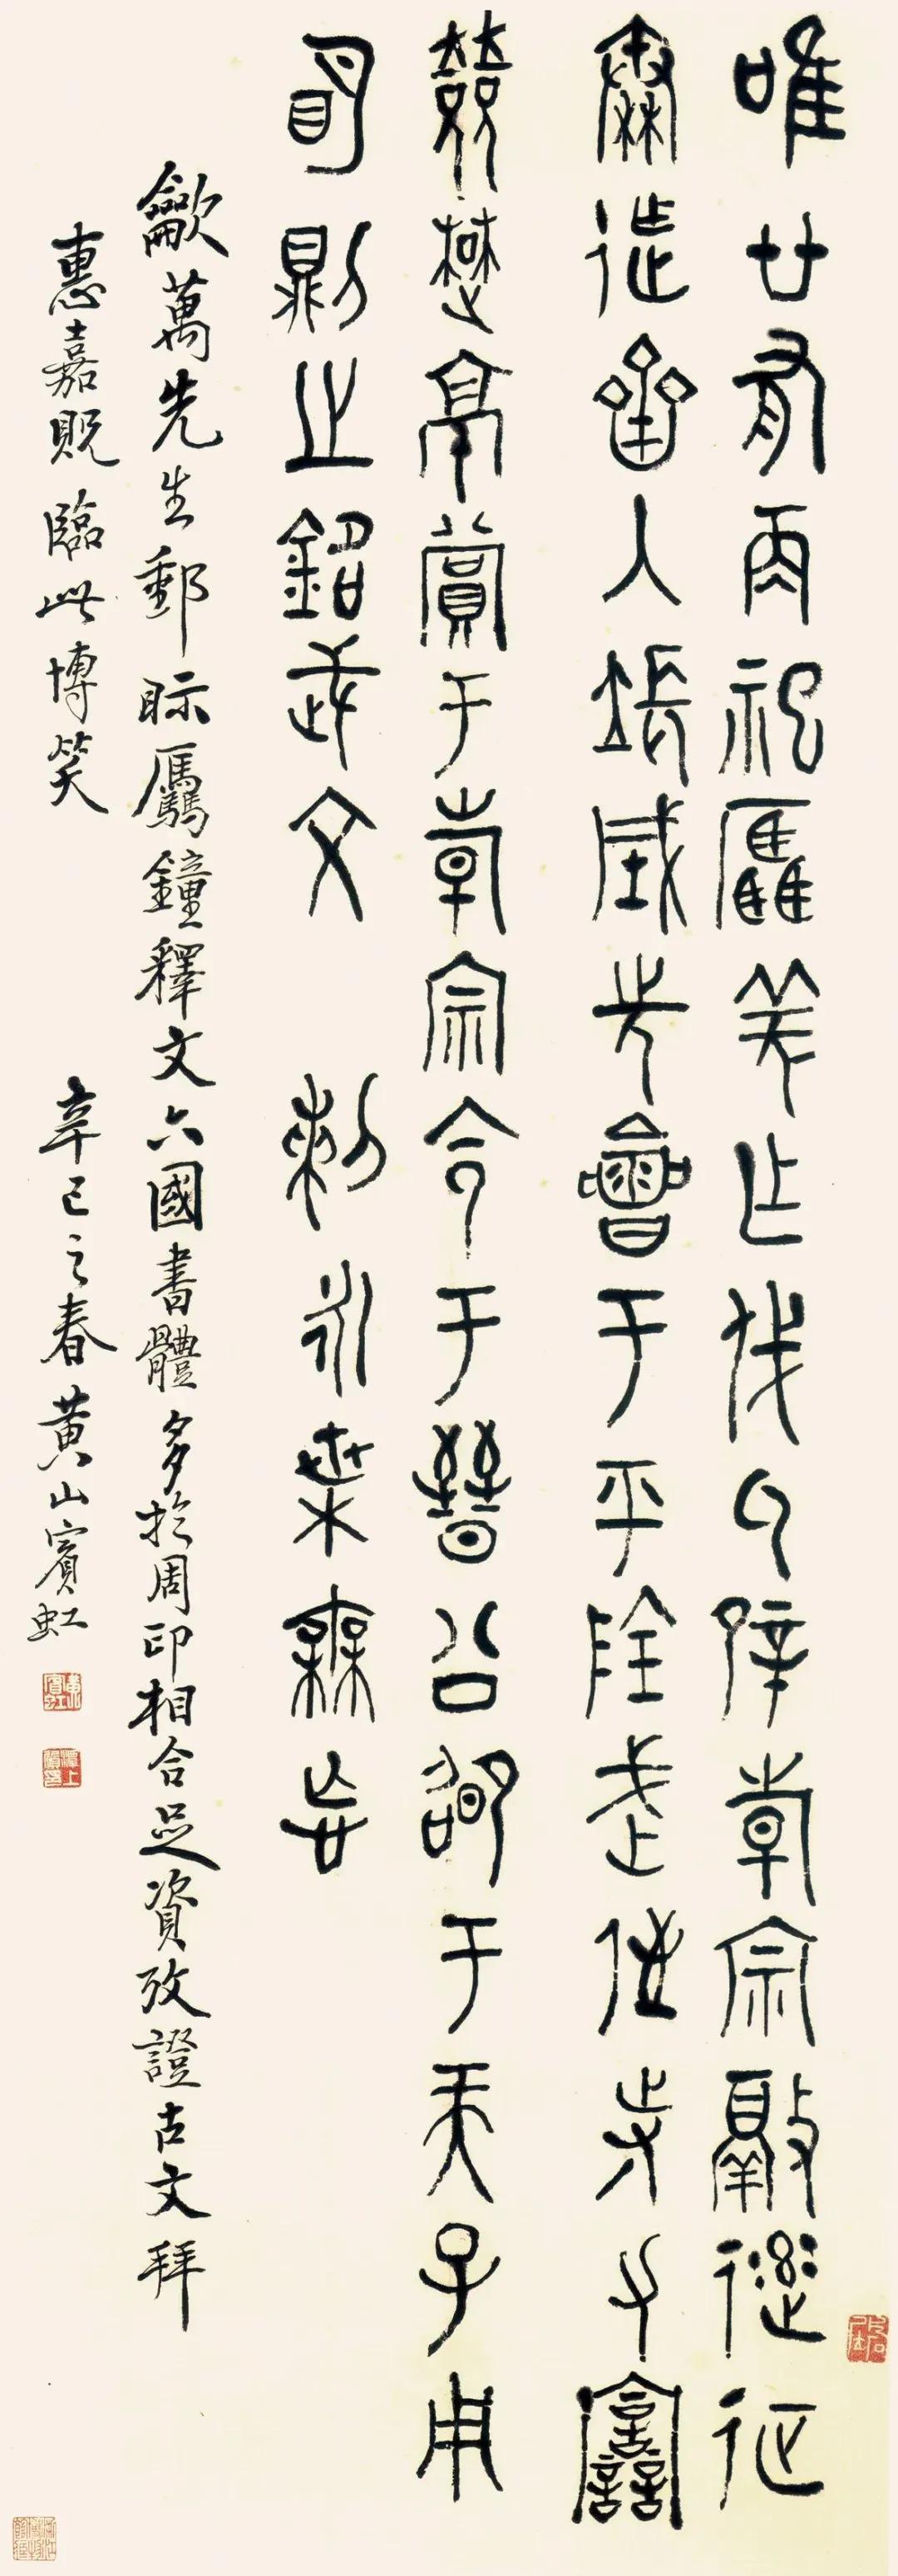 唯廿又再祀驫羌乍戎氒辟倝宗敲達征
秦迮齊入張城先會于平陰武侄寺力譶
敓楚京賞于倝宗令于晉公卲于天子用
明則之銘武文 剌永枼無忘
龡萬先生郵眎驫鐘釋文六國書體多於周印相合足資攷證古文拜
惠嘉貺臨此博笑 辛巳之春黃山賓虹